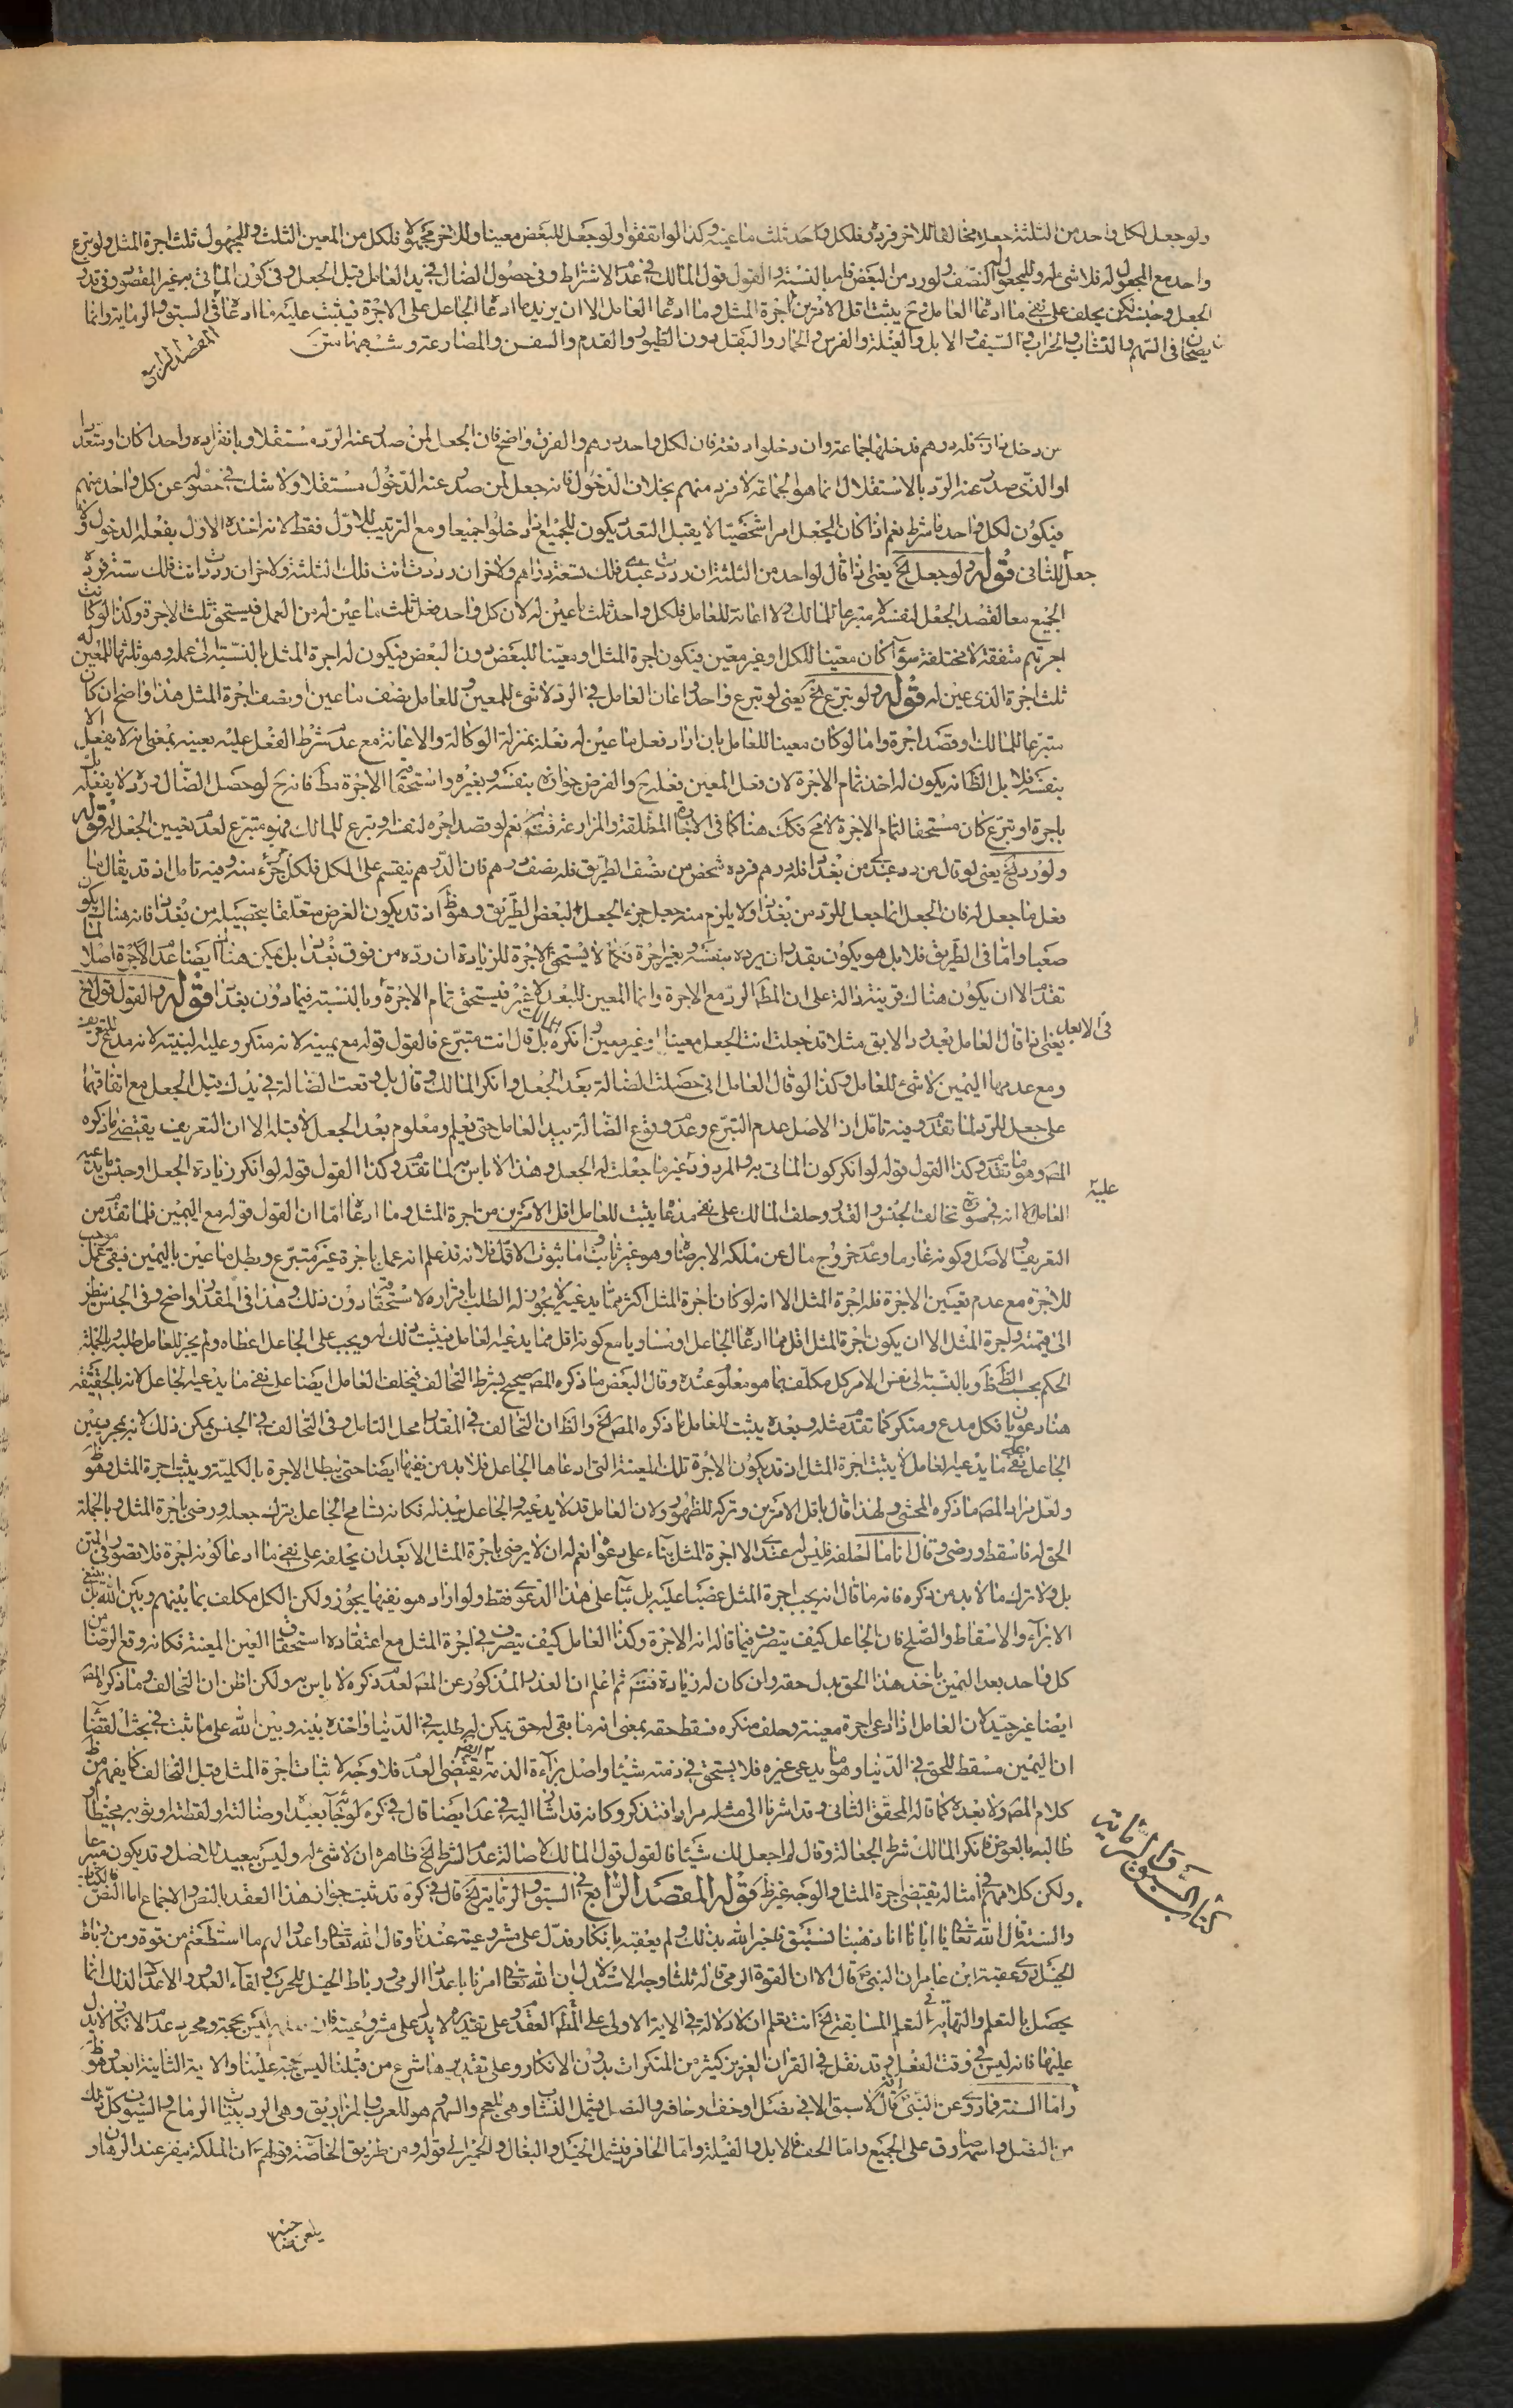 ولو جعل لكل واحد من الثلثة جعلا مخالفا للاخر فردوه فلكل واحد ثلث ما عينه وكذا لو اتفقوا ولو جعل للبعض معينا وللاخر مجهولا فلكل من المعين الثلث وللمجهول ثلث اجرة المثل ولو تبرع
واحد مع المجعول له فلا شئ له وللمجعول له النصف ولو رد من البعض فله بالنسبة والقول قول المالك في عدم الاشتراط وفى حصول الضال في يد العامل قبل الجعل وفى كون الماتى به غير المقصود وفى قدر
الجعل وجنسه لكن يحلف على نفى ما ادعاه العامل وح يثبت اقل الامرين من اجرة المثل وما ادعاه العامل الا ان يزيد ما ادعاه الجاعل على الاجرة فيثبت عليه ما ادعاه
المقصد الرابع في السبق والرماية وانما
يصحان فى السهم والنشاب والحراب والسيف والابل والفيلة والفرس والحمار والبغل دون الطيور والقدم والسفن والمصارعة وشبهها
من دخل دارى فله درهم فدخلها جماعة وان دخلوا دفعة فان لكل واحد درهم والفرق واضح فان الجعل لمن صدر عنه الرد مستقلا وبانفراده واحدا كان او متعددا
او الذى صدر عنه الرد بالاستقلال انما هو الجماعة لا فرد منهم بخلاف الدخول فانه جعل لمن صدر عنه الدخول مستقلا ولا شك في حصوله عن كل واحد منهم
فيكون لكل واحد ما شرط نعم اذا كان الجعل امرا شخصيا لا يقبل التعدد يكون للجميع اذا دخلوا جميعا ومع الترتيب للاول فقط لانه اخذه الاول بفعله الدخول ولا
جعل للثانى قوله ولو جعل الخ يعنى اذا قال لواحد من الثلثة ان رددت عبدى فلك تسعة دراهم ولاخر ان رددت انت فلك ثلثة ولاخر ان رددت انت فلك ستة فرده
الجميع معا لقصد الجعل لنفسه لا متبرعا للمالك ولا اعانة للعامل فلكل واحد ثلث ما عين له لان كل واحد فعل ثلث ما عين له من العمل فيستحق ثلث الاجرة وكذا لو كانت
اجرتهم متفقة لا مختلفة سواء كان معينا للكل او غير معين فيكون اجرة المثل او معينا للبعض دون البعض فيكون له اجرة المثل بالنسبة الى عمله وهو ثلثها وللمعين له
ثلث اجرة الذى عين له قوله ولو تبرع الخ يعنى لو تبرع واحد واعان العامل في الرد لا شئ للمعين وللعامل نصف ما عين او نصف اجرة المثل هذا واضح ان كان
متبرعا للمالك او قصد اجرة واما لو كان معينا للعامل بان اراد فعل ما عين له فعله بمنزلة الوكالة والاعانة مع عدم شرط الفعل عليه بعينه بمعنى انه لا يفعل الا
بنفسه فلا بل الظ انه يكون له اخذ تمام الاجرة لان فعل المعين فعله ح والفرض جوازه بنفسه وبغيره واستحقاقه الاجرة مط فانه ح لو حصل الضال ورده لا بفعله بل
باجرة او تبرع كان مستحقا لتمام الاجرة لامح فكك هنا كما في الاجارة المطلقة والمزارعة فتئم نعم لو قصد اجره لنفسه او تبرع للمالك فهو متبرع لعدم تعيين الجعل له قوله
ولو رد الخ يعنى لو قال من رد عبدى من بغداد فله درهم فرده شخص من نصف الطريق فله نصف درهم فان الدرهم ينقسم على الكل فلكل جزء جزء منه وفيه تامل اذ قد يقال ما
فعل ما جعل له فان الجعل انما جعل للرد من بغداد ولا يلزم منه جعل جزء الجعل لبعض الطريق وهو ظ اذ قد يكون الغرض متعلقا بتحصيله من بغداد فانه هناك يكون
صعبا واما في الطريق فلا بل هو يكون بقدر ان يرده بنفسه وبغير اجرة فكما لا يستحق الاجرة للزيادة ان رده من فوق بغداد بل يمكن هنا ايضا عدم الاجرة اصلا لما
تقدم الا ان يكون هناك قرينة دالة على ان المط الرد مع الاجرة وانما المعين للبعد لا غير فيستحق تمام الاجرة او بالنسبة فيما دون بغداد قوله والقول قول الخ
يعنى اذا قال العامل بعد رد الابق مثلا قد جعلت انت الجعل معينا او غير معين وانكره المالك بل قال انت متبرع فالقول قوله مع يمينه لانه منكر وعليه البينة لانه مدع
ومع عدمها اليمين لا شئ للعامل وكذا لو قال العامل انى حصلت الضالة بعد الجعل وانكر المالك وقال بل وقعت الضالة في يدك قبل الجعل مع اتفاقهما
على جعل للرد لما تقدم وفيه تامل اذ الاصل عدم التبرع وعدم وقوع الضالة بيد العامل حتى يعلم ومعلوم بعد الجعل لا قبله الا ان التعريف يقتضى ما ذكره
المص وهو ما تقدم وكذا القول قوله لو انكر كون الماتى به والمردود غير ما جعلت له الجعل وهذا لا باس به لما تقدم وكذا القول قوله لو انكر زيادة الجعل او جنس ما يدعيه
العامل الا انه في صورة تخالف الجنس والقدر وحلف المالك على نفى مدعاه يثبت للعامل اقل الامرين من اجرة المثل وما ادعاه اما ان القول قوله مع اليمين فلما تقدم من
التعريف والاصل وكونه غارما وعدم خروج مال عن ملكه الا برضاه وهو غير ثابت واما ثبوت الاقل فلانه قد علم انه عمل باجرة غير متبرع وبطل ما عين باليمين فبقى عمل موجب
للاجرة مع عدم تعيين الاجرة فله اجرة المثل الا انه لو كان اجرة المثل اكثر مما يدعيه لا يجوز له الطلب باقراره لاستحقاقه دون ذلك وهذا في المقدار واضح وفى الجنس ينظر
الى قيمته واجرة المثل الا ان يكون اجرة المثل اقل مما ادعاه الجاعل او تساويا مع كونه اقل مما يدعيه العامل فيثبت ذلك له ويجب على الجاعل اعطاه ولم يجز للعامل طلبه وبالجملة
الحكم بحسب الظ ظ وبالنسبة الى نفس الامر كل مكلف بما هو معلوم عنده وقال البعض ما ذكره المص صحيح بشرط التحالف فيحلف العامل ايضا على نفى ما يدعيه الجاعل لانه بالحقيقة
هنا دعويان فكل مدع ومنكر كما تقدم مثله وبعده يثبت للعامل ما ذكره المص الخ والظ ان التحالف في المقدار محل التامل وفى التحالف في الجنس يمكن ذلك لانه بمجرد يمين
الجاعل على نفى ما يدعيه العامل لا يثبت اجرة المثل اذ قد يكون الاجرة تلك المعينة التى ادعاها الجاعل فلا بد من نفيها ايضا حتى يبطل الاجرة بالكلية ويثبت اجرة المثل وهو ظ
ولعل مراد المص ما ذكره المحشى ولهذا قال باقل الامرين وتركه للظهور ولان العامل قد لا يدعيه والجاعل يبذله فكانه تسامح الجاعل بترك جعله ورضى باجرة المثل وبالجملة
الحق له فاسقط ورضى وقال انا ما احلفه فليس له عندى الا اجرة المثل بناء على دعواه نعم له ان لا يرضى باجرة المثل الا بعد ان يحلفه على نفى ما ادعاه كونه اجرة فلا تصور في المتن
بل ولا ترك ما لا بد من ذكره فانه ما قال انه يجب اجرة المثل غصبا عليه بل بناء على هذا الدعوى فقط ولو اراد هو نفيها يجوز ولكن الكل مكلف بما بينهم وبين الله بل ينبغى
الابراء والاسقاط والصلح فان الجاعل كيف يتصرف فيما قاله انه الاجرة وكذا العامل كيف يتصرف في اجرة المثل مع اعتقاده استحقاق العين المعينة فكانه وقع الرضا من
كل واحد بعد اليمين باخذ هذا الحق بدل حقه وان كان له زيادة فتئم ثم اعلم ان العذر المذكور عن المص لعدم ذكره لا باس به ولكن اظن ان التحالف وما ذكره المص
ايضا غير جيد لان العامل اذا ادعى اجرة معينة وحلف منكره فسقط حقه بمعنى انه ما بقى له حق يمكن له طلبه في الدنيا واخذه بينه وبين الله على ما ثبت في بحث القضاء
ان اليمين مسقط للحق في الدنيا وهو ما يدعى غيره فلا يستحق في ذمته شيئا واصل براءة الذمة يقتضى العدم فلا وجه لاثبات اجرة المثل قبل التحالف كما يفهم من ظ
كلام المص ولا بعده كما قاله المحقق الثانى وقد اشرنا الى مثله مرارا فتذكر وكانه قد اشار اليه في عد ايضا قال في كره لو جاء بعبد او ضالة او لقطة او ثوب مخيط او
طالبه بالعوض فانكر المالك شرط الجعالة وقال لم اجعل لك شيئا فالقول قول المالك لاصالة عدم الشرط الخ ظاهره ان لا شئ له وليس ببعيد للاصل وقد يكون متبرعا
ولكن كلامهم في امثاله يقتضى اجرة المثل والوجه غير ظ قوله المقصد الرابع في السبق والرماية الخ قال في كره قد ثبت جواز هذا العقد بالنص والاجماع اما النص فالكتاب
والسنة قال الله تعالى يا ابانا انا ذهبنا نستبق فاخبر الله بذلك ولم يعقبه بانكار فدل على مشروعيته عندنا وقال الله تعالى واعدوا لهم ما استطعتم من قوة ومن رباط
الخيل روى عقبة ابن عامر ان النبى ص قال الا ان القوة الرمى قاله ثلثا وجه الاستدلال ان الله تعالى امرنا باعداد الرمى ورباط الخيل للحرب ولقاء العدو والاعداد لذلك انما
يحصل بالتعلم والنهاية في التعلم المسابقة الخ انت تعلم ان لا دلالة في الاية الاولى على المط العقد وعلى تقديره لا يدل على مشروعيته فان ليس بحجة ومجرد عدم الانكار لا يدل
عليها فانه ليس في وقت الفعل وقد نقل في القران العزيز كثير من المنكرات بدون الانكار وعلى تقديرها شرع من قبلنا ليس حجة علينا والاية الثانية ابعد وهو ظ
واما السنة فما روى عن النبى ص انه قال لا سبق الا في نصل او خف او حافر والنصل يشمل النشاب وهى للعجم والسهم وهو للعرب والمزاريق وهى الردينيات والرماح والسيوف كل ذلك
من النصل واسمه صادق على الجميع واما الخف فالابل والفيلة واما الحافر فيشمل الخيل والبغال والحمير الى قوله ومن طريق الخاصة قولهم ع ان الملائكة تنفر عند الرهان و
في الابعد
عليه
كتاب السبق والرماية